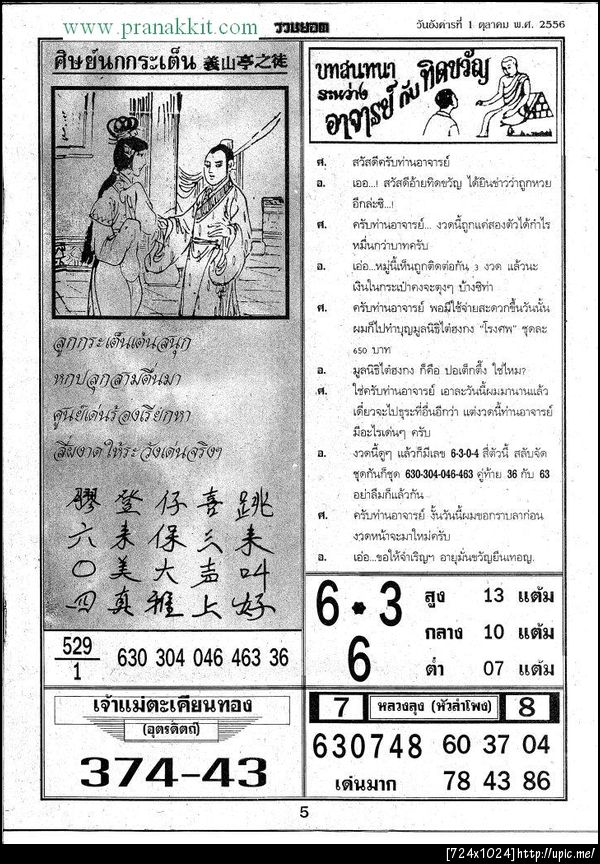 www.pranakkit.com
รวมยอด
วันอังคารที่ 1 ตุลาคม พ.ศ. 2556
ศิษย์นกกระเต็น 義山亭之徒
ลูกกระเต็นเต้นสนุก
หกปลุกสามตื่นมา
ศูนย์เด่นร้องเรียกหา
สี่ผงาดให้ระวังเด่นจริงๆ
膠登仔喜跳
六未保三来
〇美大声叫
四真雅上好
529
1
630 304 046 463 36
เจ้าแม่ตะเคียนทอง
(อุตรดิตถ์)
374-43
บทสนทนา
ระหว่าง
อาจารย์ กับ ทิดขวัญ
ศ. สวัสดีครับท่านอาจารย์
อ. เออ...! สวัสดีอ้ายทิดขวัญ ได้ยินข่าวว่าถูกหวย
อีกล่ะซิ...!
ศ. ครับท่านอาจารย์... งวดนี้ถูกแค่สองตัวได้กำไร
หมื่นกว่าบาทครับ
อ. เอ่อ...หมู่นี้เห็นถูกติดต่อกัน 3 งวด แล้วนะ
เงินในกระเป๋าคงจะตุงๆ บ้างซิท่า
ศ. ครับท่านอาจารย์ พอมีใช้จ่ายสะดวกขึ้นวันนั้น
ผมก็ไปทำบุญมูลนิธิไต้ฮงกง "โรงศพ" ชุดละ
650 บาท
อ. มูลนิธิไต้ฮงกง ก็คือ ปอเต็กตึ๊ง ใช่ไหม?
ศ. ใช่ครับท่านอาจารย์ เอาละวันนี้ผมมานานแล้ว
เดี๋ยวจะไปธุระที่อื่นอีกว่า แต่งวดนี้ท่านอาจารย์
มีอะไรเด่นๆ ครับ
อ. งวดนี้ดูๆ แล้วก็มีเลข 6-3-0-4 สี่ตัวนี้ สลับจัด
ชุดกันก็ชุด 630-304-046-463 คู่ท้าย 36 กับ 63
อย่าลืมก็แล้วกัน
ศ. ครับท่านอาจารย์ งั้นวันนี้ผมขอกราบลาก่อน
งวดหน้าจะมาใหม่ครับ
อ. เอ่อ...ขอให้จำเริญๆ อายุมั่นขวัญยืนเทอญ.
6 • 3
6
สูง 13 แต้ม
กลาง 10 แต้ม
ต่ำ 07 แต้ม
7 หลวงลุง (หัวลำโพง) 8
630748 60 37 04
เด่นมาก 78 43 86
5
[724x1024]http://upic.me/